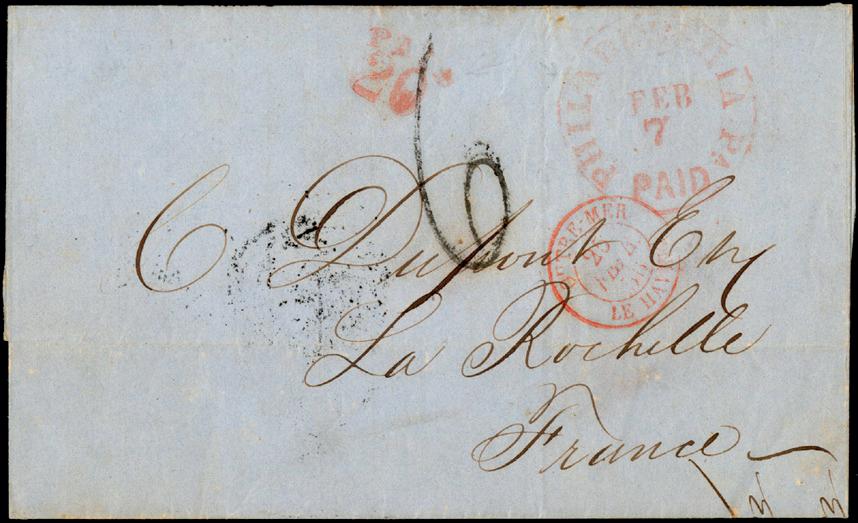 PAID
26
6
PHILADELPHIA Pa
FEB
7
PAID
OUTRE-MER
25
FEVR
LE HAVRE
C Dupont Esq
La Rochelle
France